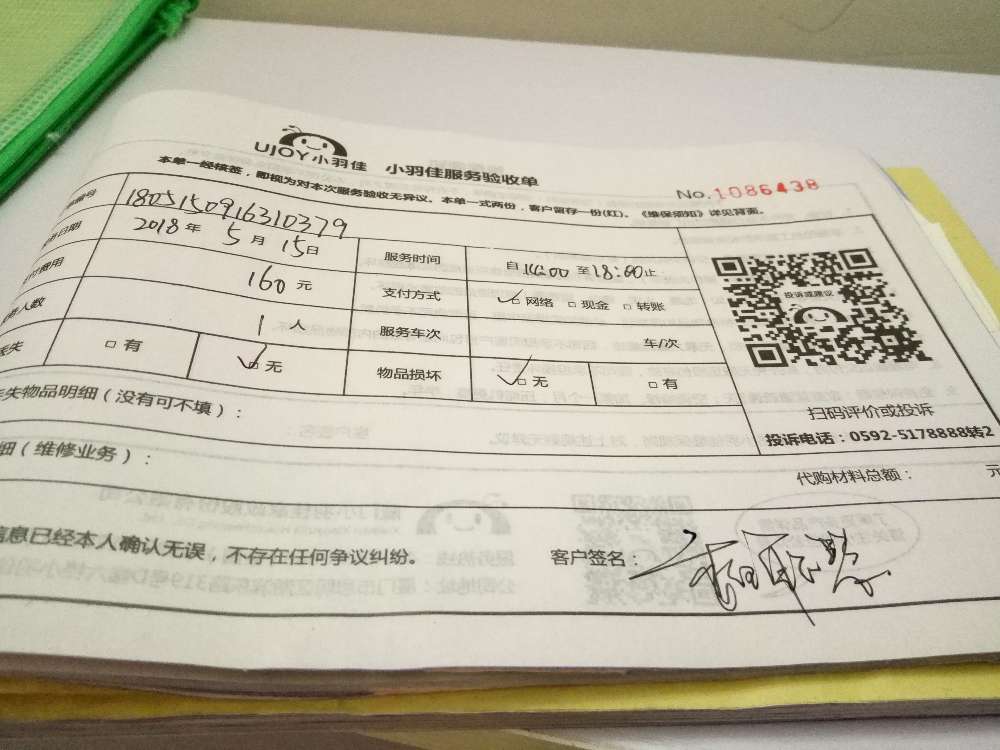 UJOY小羽佳 小羽佳服务验收单
本单一经核签，即视为对本次服务验收无异议。本单一式两份，客户留存一份(红)。《维保须知》详见背面。
No.1086438
编号 1805150916310379
务日期 2018年 5月 15日 服务时间 自14:00至18:00止
付费用 160元 支付方式 网络 现金 转账
人数 1人 服务车次 车/次
丢失 有 无 物品损坏 无 有
投诉或建议
扫码评价或投诉
投诉电话：0592-5178888转2
失物品明细（没有可不填）：
细（维修业务）： 代购材料总额： 元
信息已经本人确认无误，不存在任何争议纠纷。 客户签名：